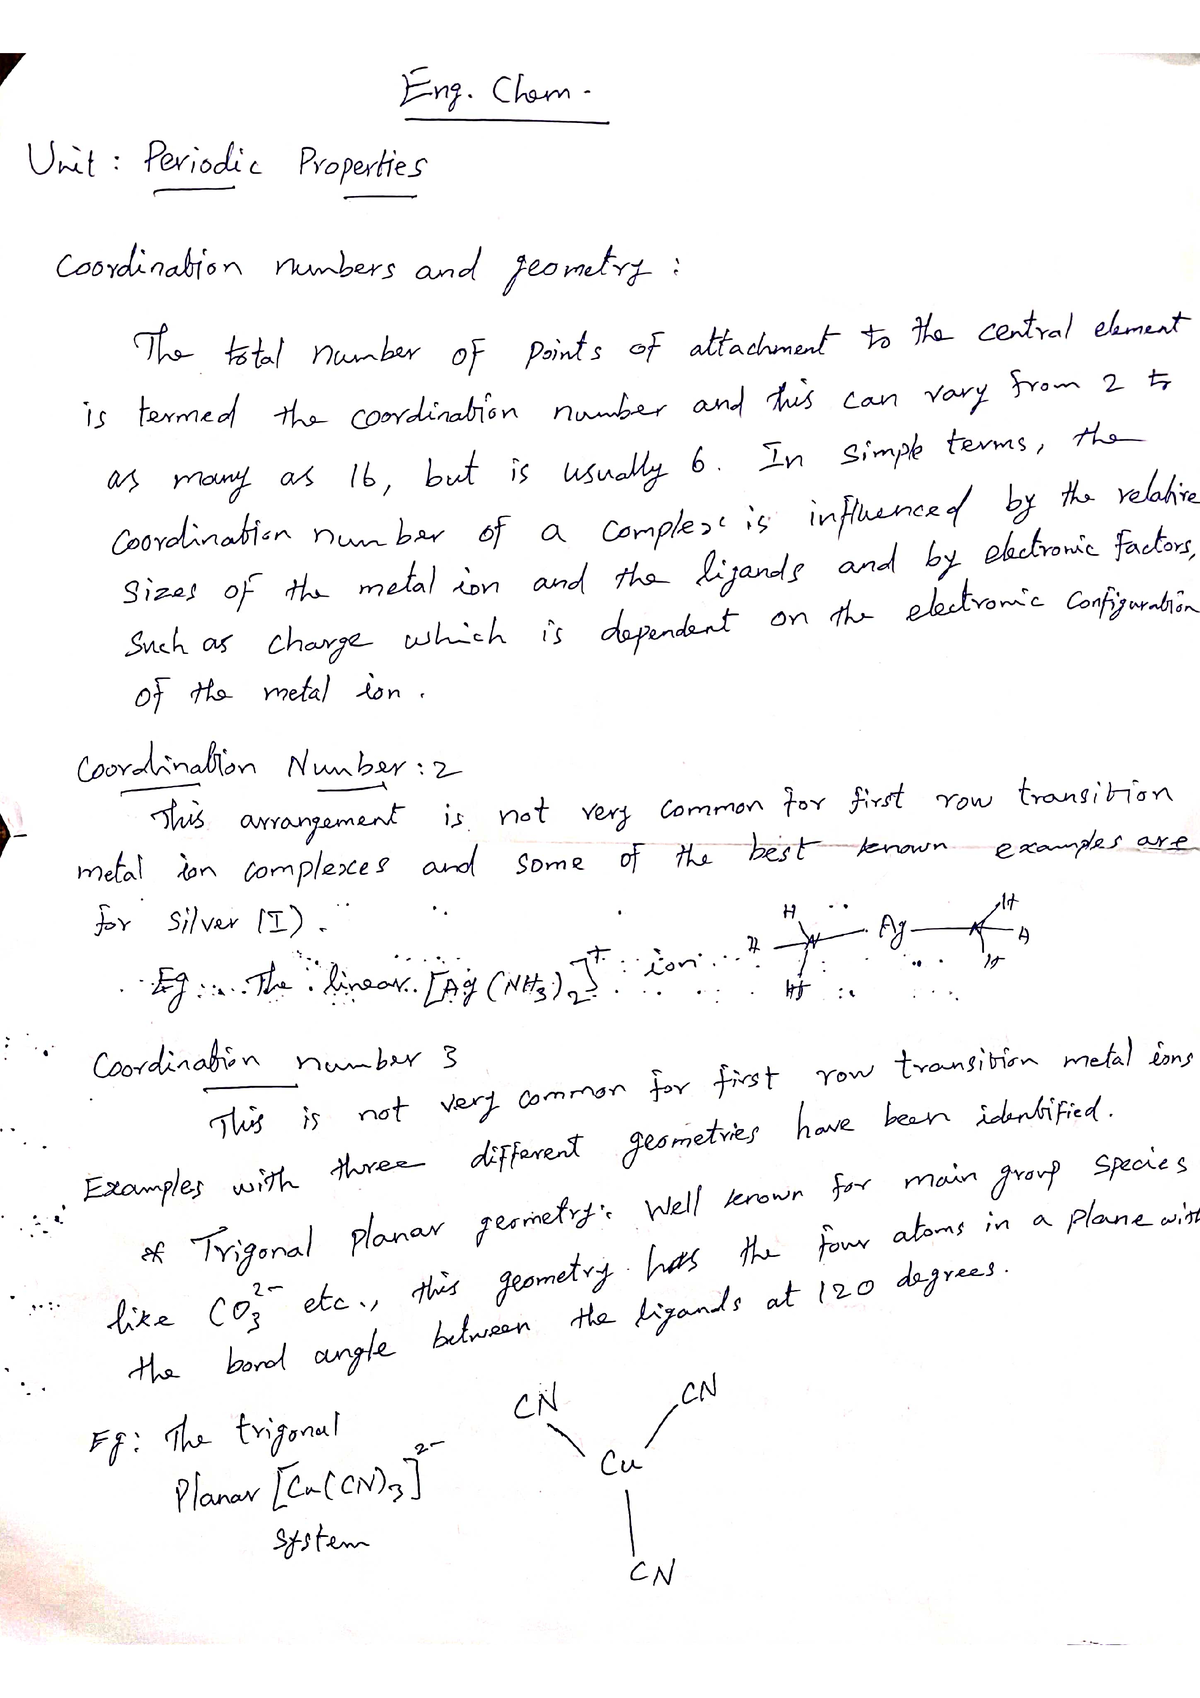 Eng. Chem.
Unit : Periodic Properties
Coordination numbers and geometry :
The total number of points of attachment to the central element
is termed the coordination number and this can vary from 2 to
as many as 16, but is usually 6. In simple terms, the
Coordination number of a complex is influenced by the relative
Sizes of the metal ion and the ligands and by electronic factors,
Such as charge which is dependent on the electronic configuration
of the metal ion.
Coordination Number : 2
This arrangement is not very common for first row transition
metal ion complexes and some of the best known examples are
for silver (I).
Eg The linear [Ag (NH3)2]+ ion
H H
H N Ag N H
H H
Coordination number 3
This is not very common for first row transition metal ions
Examples with three different geometries have been identified.
* Trigonal planar geometry: Well known for main group species
like CO3 2- etc., this geometry has the four atoms in a plane with
the bond angle between the ligands at 120 degrees.
Eg: The trigonal
Planar [Cu(CN)3]2-
System
CN CN
Cu
CN